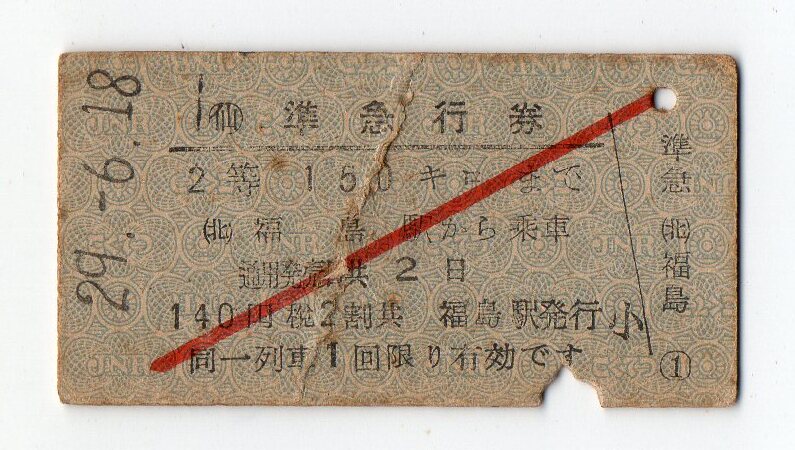 29.-6.18
㋥ 準急行券
2等 150キロまで
(北)福島駅から乗車
通用発売日共2日
140円税2割共 福島駅発行
同一列車1回限り有効です
小
準急 (北)福島 ①